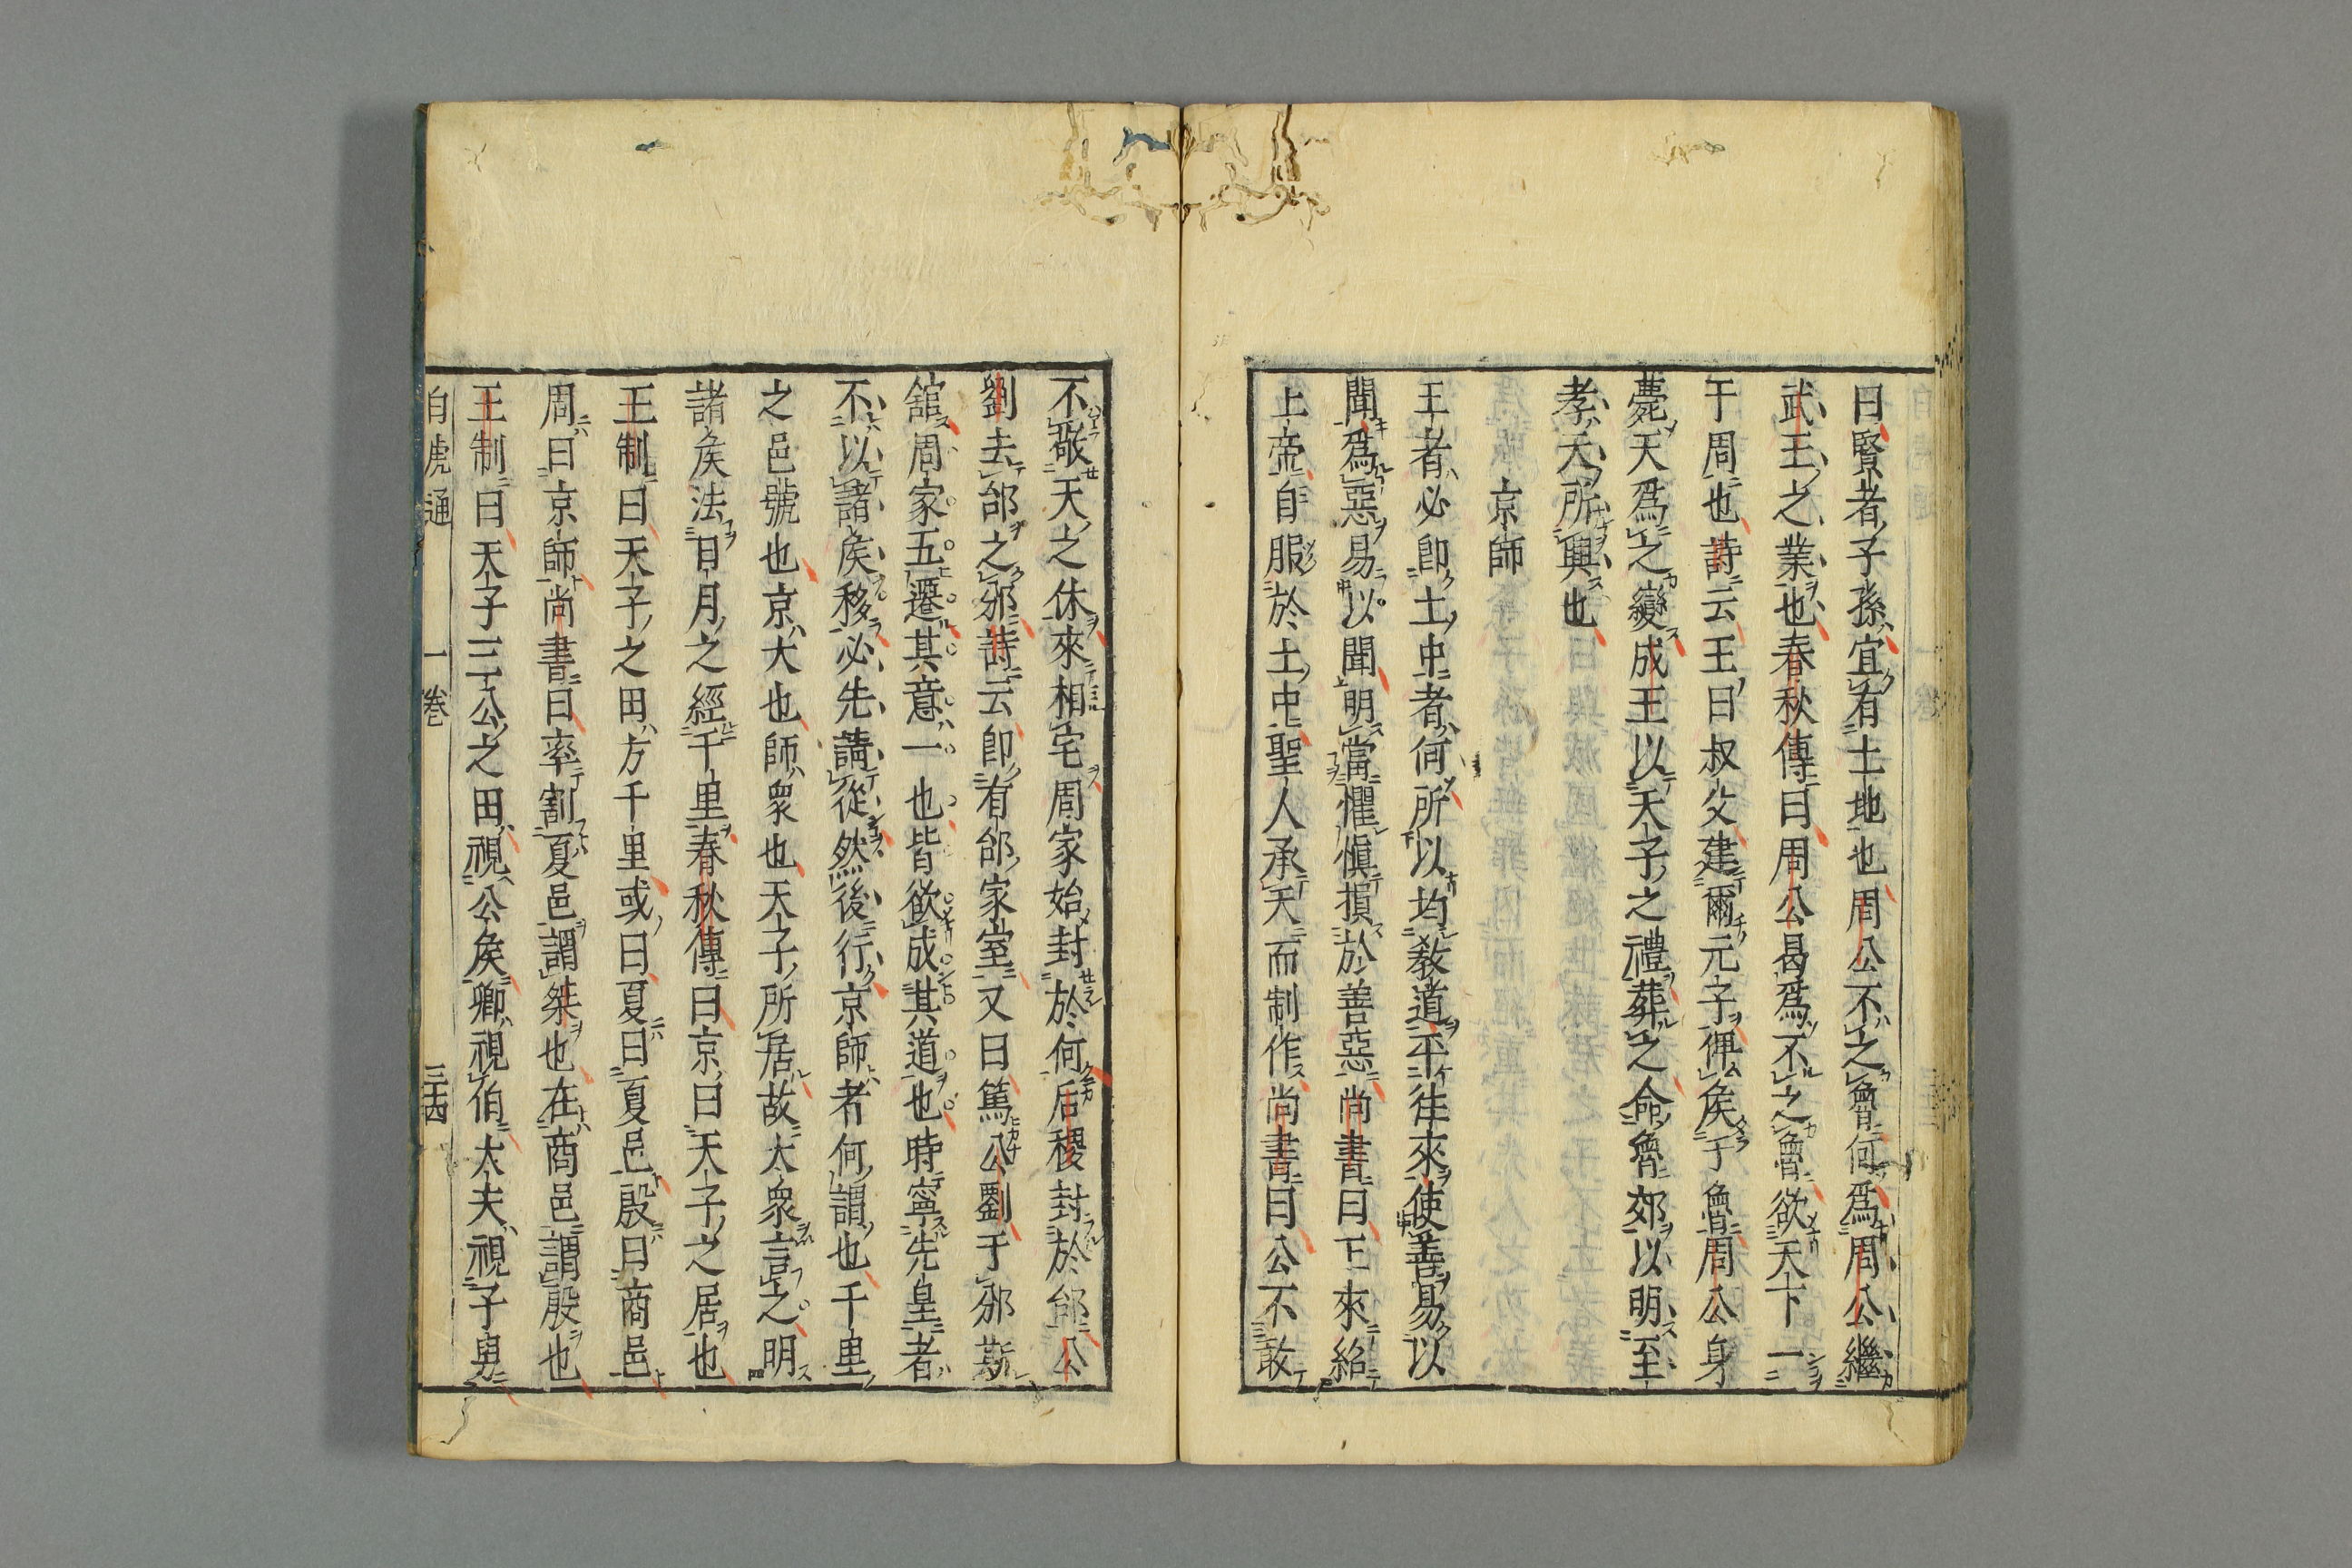 曰賢者子孫宜有土地也周公不之魯何爲周公繼
武王之業也春秋傳曰周公曷爲不之魯欲天下一
于周也詩云王曰叔父建爾元子俾矦于魯周公身
薨天爲之變成王以天子之禮葬之命魯郊以明至
孝天所興也
京師
王者必卽土中者何所以均敎道平徃來使善易以
聞爲惡易以聞明當懼愼損於善惡尚書曰王來紹
上帝自服於土中聖人承天而制作尚書曰公不敢
不敬天之休來相宅周家始封於何后稷封於邰公
劉去邰之邠詩云卽有邰家室又曰篤公劉于邠斯
舘周家五遷其意一也皆欲成其道也時寧先皇者
不以諸矦移必先請從然後行京師者何謂也千里
之邑號也京大也師衆也天子所居故大衆言之明
諸矦法日月之經千里春秋傳曰京曰天子之居也
王制曰天子之田方千里或曰夏曰夏邑殷曰商邑
周曰京師尚書曰率割夏邑謂桀也在商邑謂殷也
王制曰天子三公之田視公矦卿視伯大夫視子男
白虎通 一卷 三十四